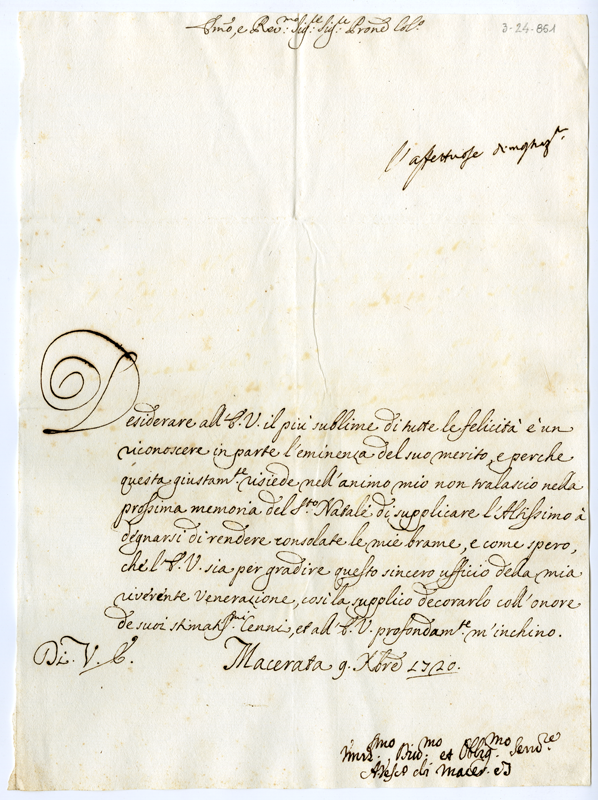 Emo, e Revmo Sigre Sigre Prone Colo
3-24-861
l'affettuose
Desiderare all'E.V. il più sublime di tutte le felicità è un
riconoscere in parte l'eminenza del suo merito, e perche
questa giustamte risiede nell'animo mio non tralascio nella
prossima memoria del Sto Natale di supplicare l'Altissimo à
degnarsi di rendere consolate le mie brame, e come spero,
che l'E.V. sia per gradire questo sincero ufficio della mia
riverente venerazione, così la supplico decorarlo coll'onore
de suoi stimatmi cenni, et all'E.V. profondamte m'inchino.
Di V. E. Macerata 9. Xbre 1720.
Divmo et Obligmo Servre
di Macer.